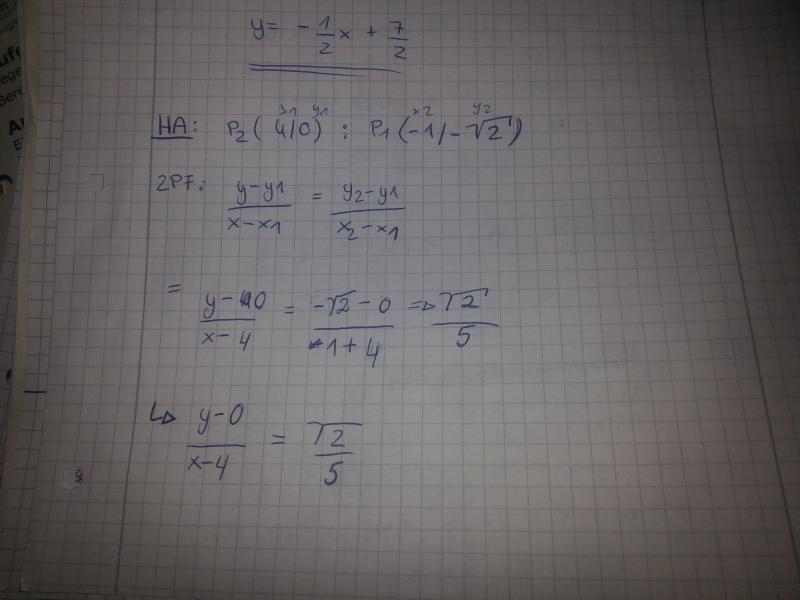 y = - 1/2 x + 7/2
HA: P2 ( 4/0 ) ; P1 ( -1 / -√2 )
x1 y1 x2 y2
2PF: y-y1 / x-x1 = y2-y1 / x2-x1
= y-0 / x-4 = -√2-0 / -1+4 => √2 / 5
↳ y-0 / x-4 = √2 / 5